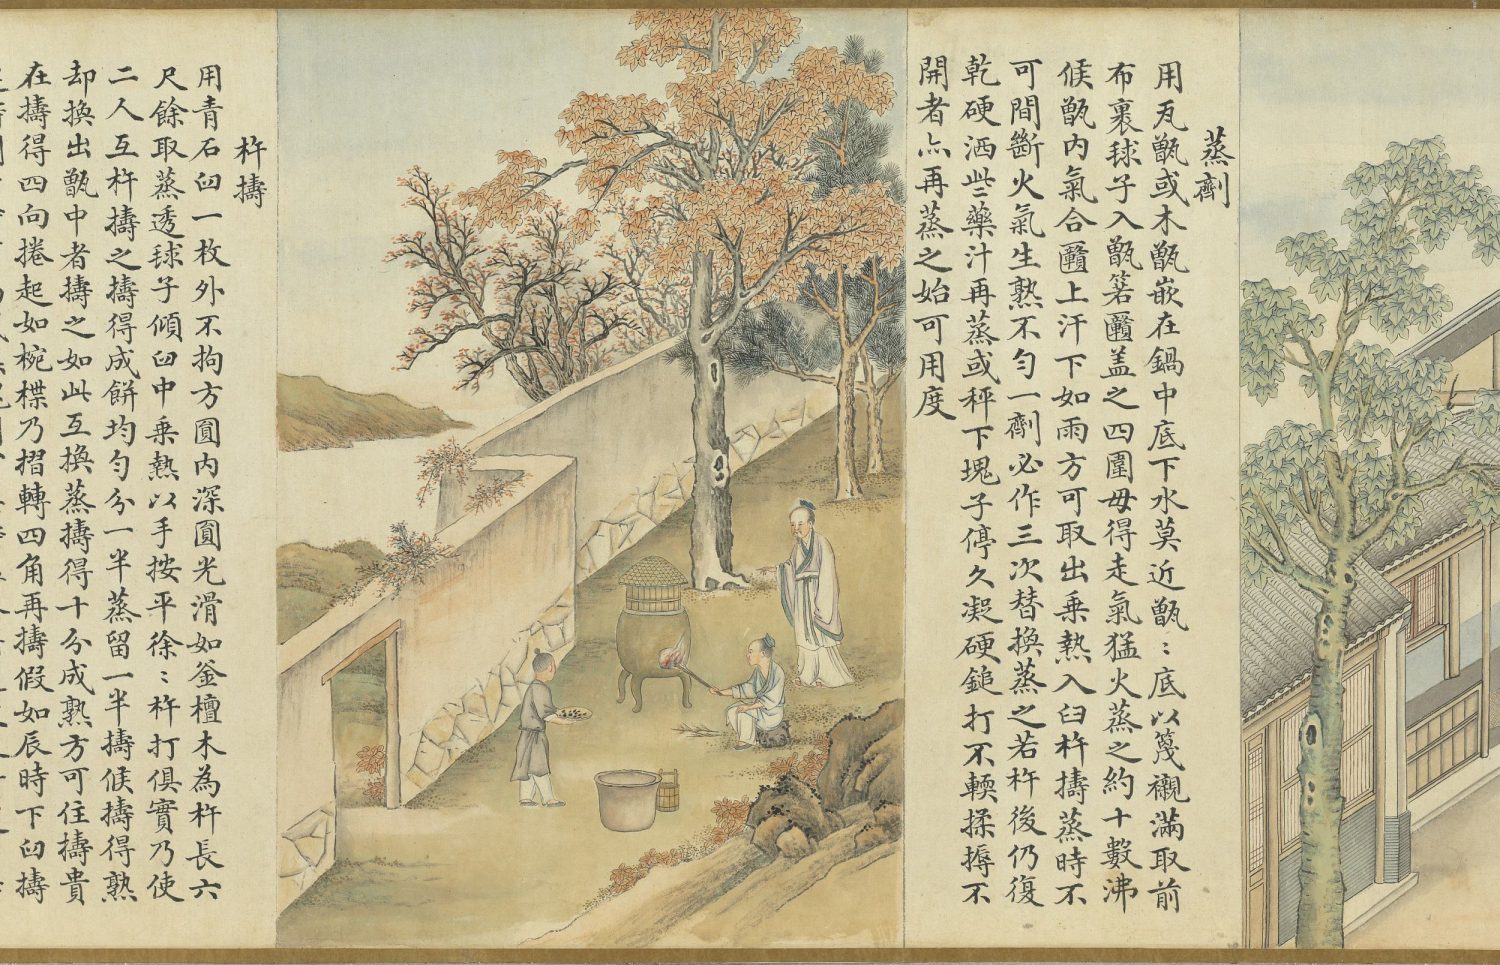 蒸劑
用瓦甑或木甑嵌在鍋中底下水莫近甑〻底以篾襯滿取前
布裹球子入甑箬蓋之四圍毋得走氣猛火蒸之約十數沸
候甑內氣合上汗下如雨方可取出乗熱入臼杵擣蒸時不
可間斷火氣生熟不勻一劑必作三次替換蒸之若杵後仍復
乾硬洒些藥汁再蒸或秤下塊子停久凝硬鎚打不輭揉搙不
開者亦再蒸之始可用度
杵擣
用青石臼一枚外不拘方圓內深圓光滑如釜檀木為杵長六
尺餘取蒸透球子傾臼中乗熱以手按平徐〻杵打俱實乃使
二人互杵擣之擣得成餅均勻分一半蒸留一半擣候擣得熟
却換出甑中者擣之如此互換蒸擣得十分成熟方可住擣貴
在擣得四向捲起如椀楪乃摺轉四角再擣假如辰時下臼擣